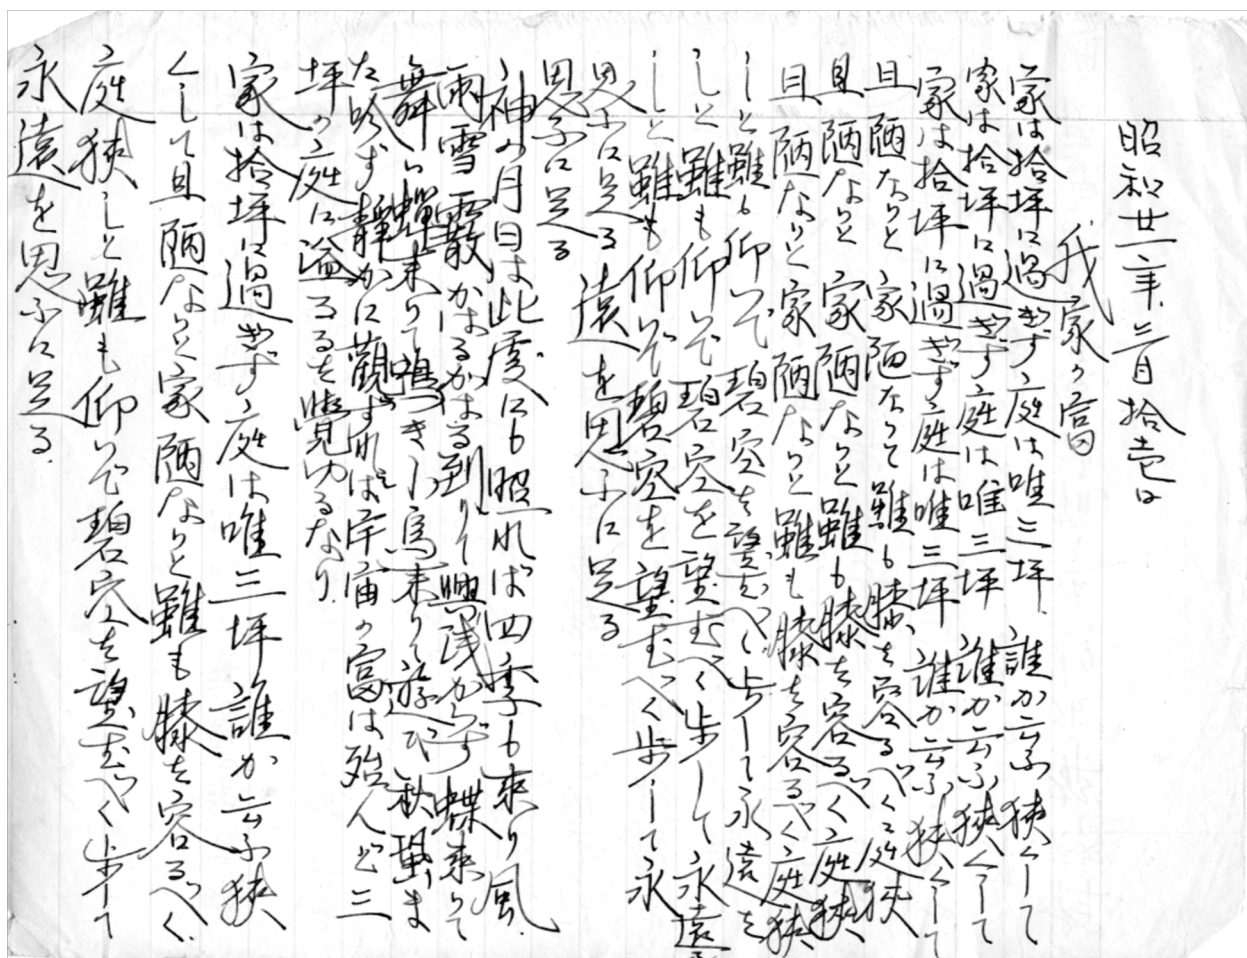 昭和廿一年三月拾壱日
我家の富
家は拾坪に過ぎず庭は唯三坪 誰か云ふ狭くして
家は拾坪に過ぎず庭は唯三坪 誰か云ふ狭くして
家は拾坪に過ぎず庭は唯三坪 誰か云ふ狭くして
且陋なりと 家陋なりて雖も膝を容るべく庭狭
且陋なりと 家陋なりと雖も膝を容るべく庭狭
且陋なりと家陋なりと雖も膝を容るべく庭狭
しと雖も仰いで碧空を望むべし歩して永遠を
しと雖も仰いで碧空を望むべく歩して永遠を
しと雖も仰いで碧空を望むべく歩して永
思ふに足る 遠を思ふに足る
思ふに足る
神の月日は此處にも照れば四季も来り風
雨雪霰かはるがはる到りて興浅からず蝶来りて
舞ひ蝉来りて鳴き小鳥来りて遊び秋蛩ま
た吟ず静かに觀ずれば宇宙の富は殆んど三
坪の庭に溢るるを覺ゆるなり
家は拾坪に過ぎず庭は唯三坪誰か云ふ狭
くして且陋なりと家陋なりと雖も膝を容るべく
庭狭しと雖も仰いで碧空を望むべく歩して
永遠を思ふに足る